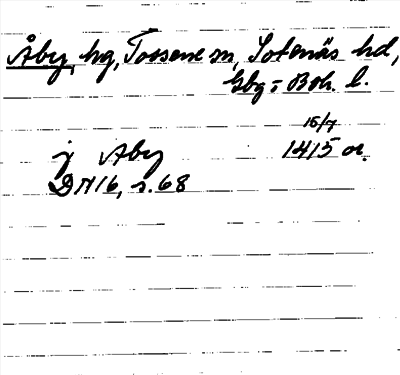 Åby, hg, Tossene sn, Sotenäs hd,
Gbg o Boh l.
15/7
j Åby 1415 or.
DN 16, s. 68